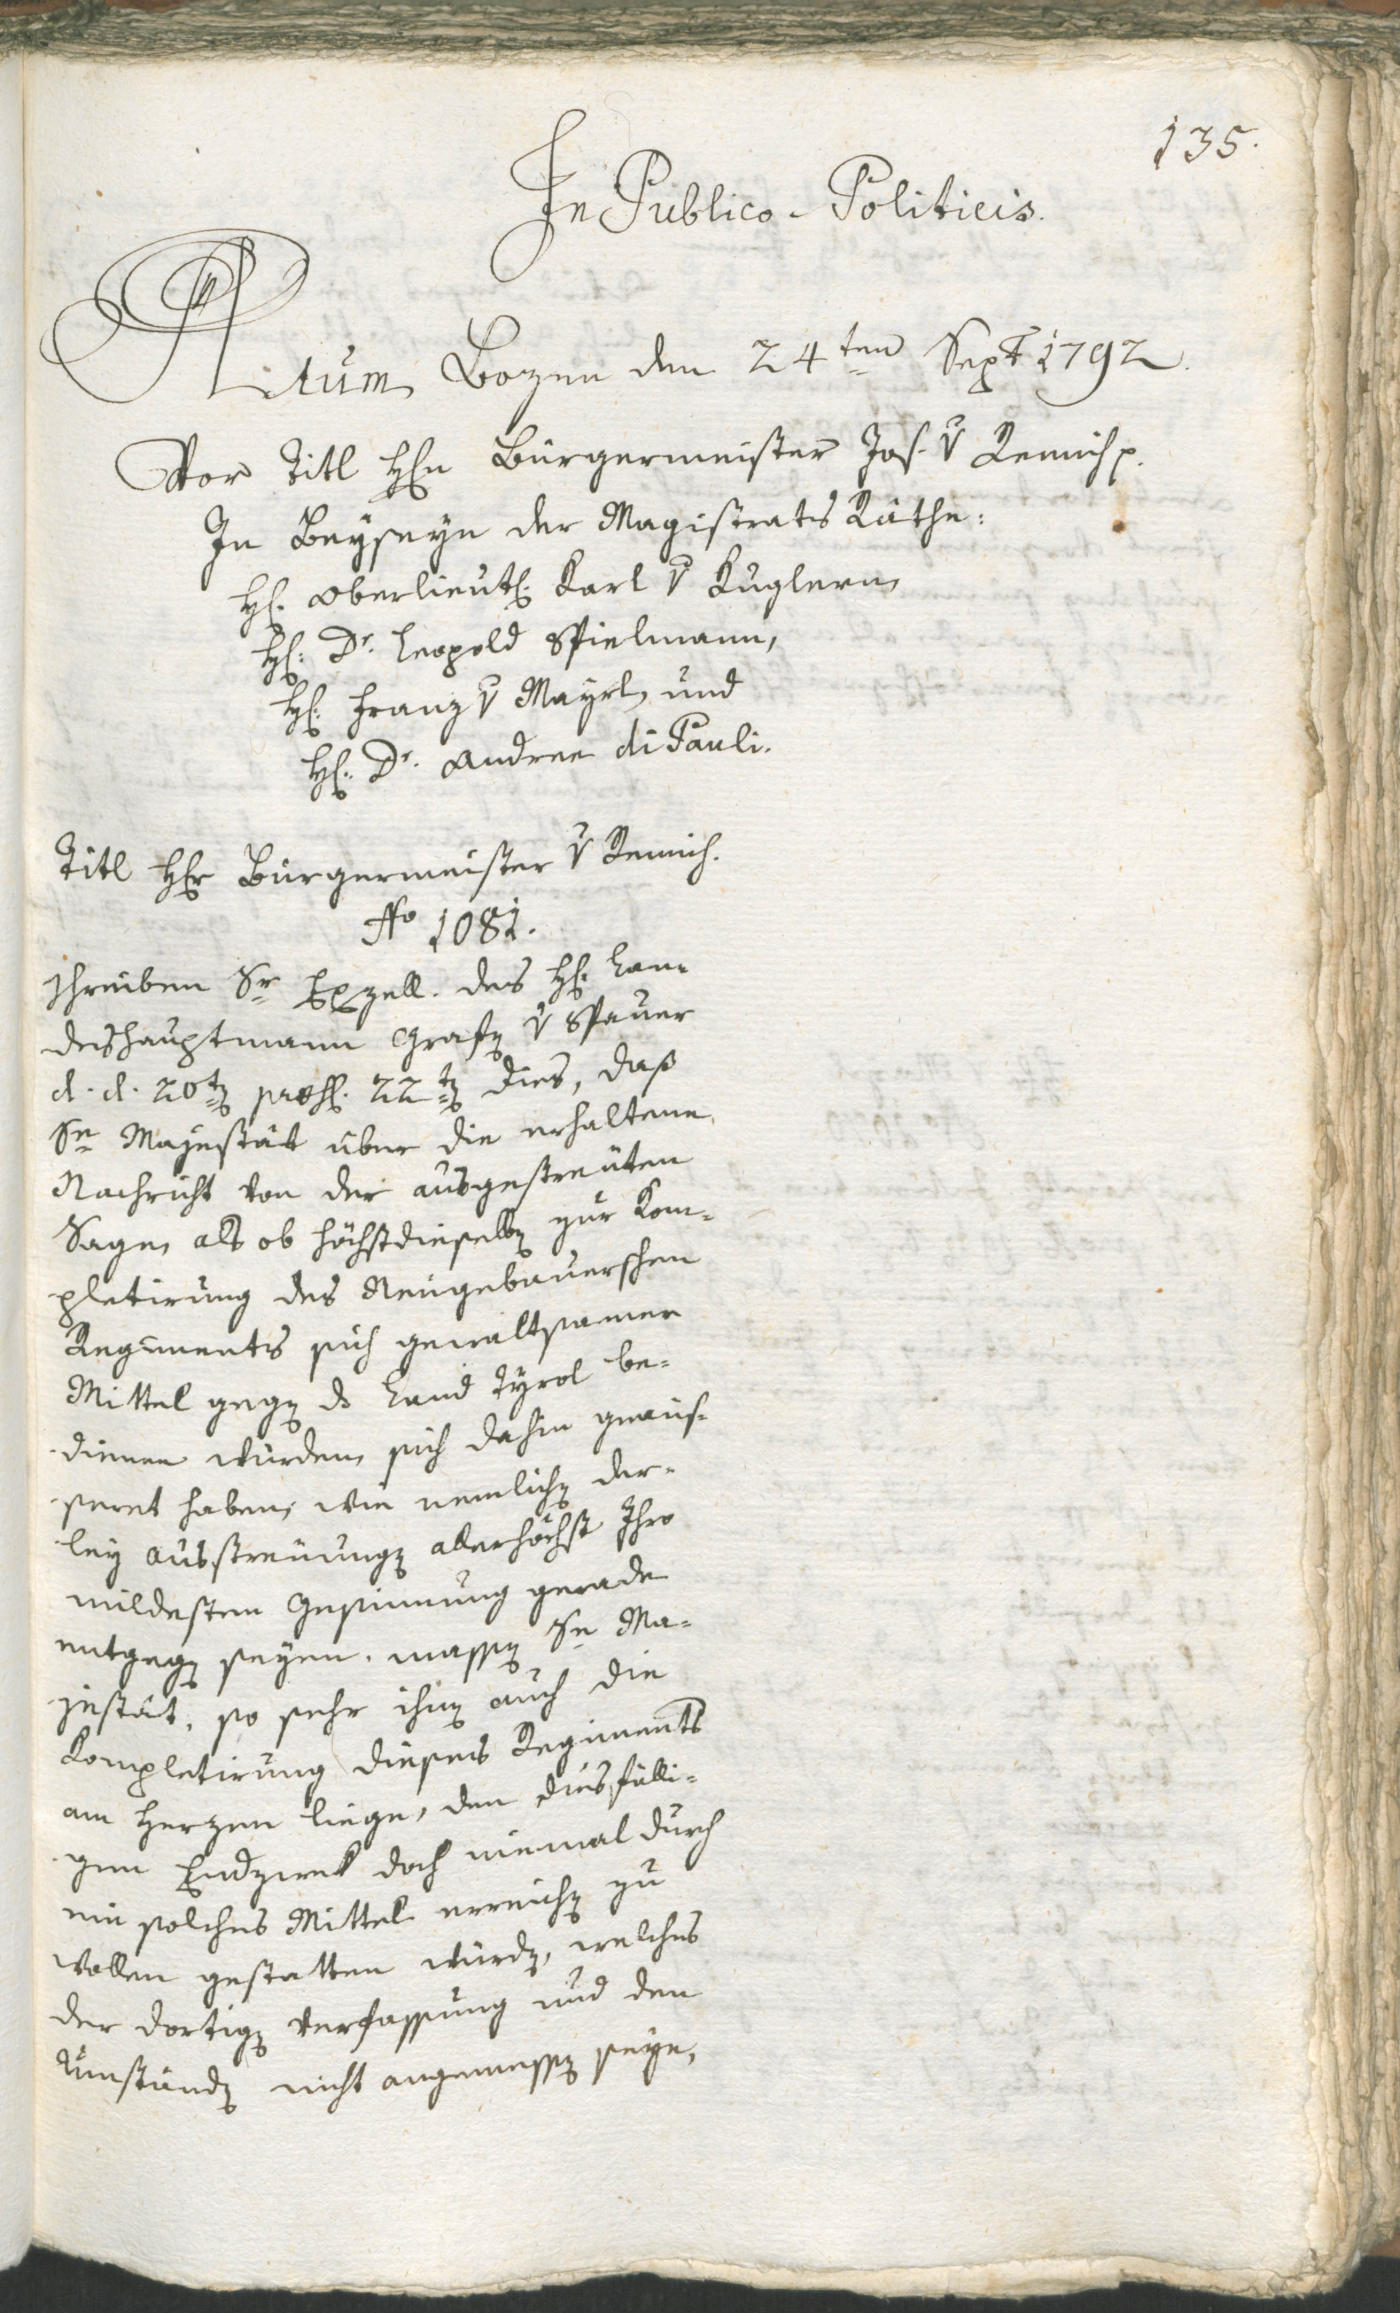 135.
In Publico-Politicis.
Actum Bozen den 24ten Sept 1792.
Vor Titl Hℓn Bürgermeister Jos. v Remich p.
In Beyseyn der Magistrats Räthe:
Hℓ. Oberlieutℓ. Karl v Kuglern,
Hℓ: Dr. Leopold Spielmann,
Hℓ: Franz v Mayrl, und
Hℓ: Dr. Andree di Pauli.
Titl Hℓr Bürgermeister v Remich.
No 1081.
Schreiben Sr Exzell. des Hℓ. Lan-
deshauptmann Grafen v Spauer
d. d. 20ten præs. 22ten dies, daß
Se Majestät über die erhaltene
Nachricht von der ausgestreüten
Sage, als ob höchstdieselben zur Kom-
pletirung des Neugebauerschen
Regiments sich gewaltsamer
Mittel gegen ds Land Tyrol be-
dienen würden, sich dahin geaüs-
seret haben, wie nemlichen der-
ley Ausstreüungen allerhöchst Ihro
mildesten Gesinnung gerade
entgegen seyen, massen Se Ma-
jestät, so sehr ihnen auch die
Kompletirung dieses Regiments
am Herzen liege, den diesfälli-
gen Endzwek doch niemal durch
ein solches Mittel erreichen zu
wollen gestatten würden, welches
der dortigen Verfassung und den
Umständen nicht angemessen seye,